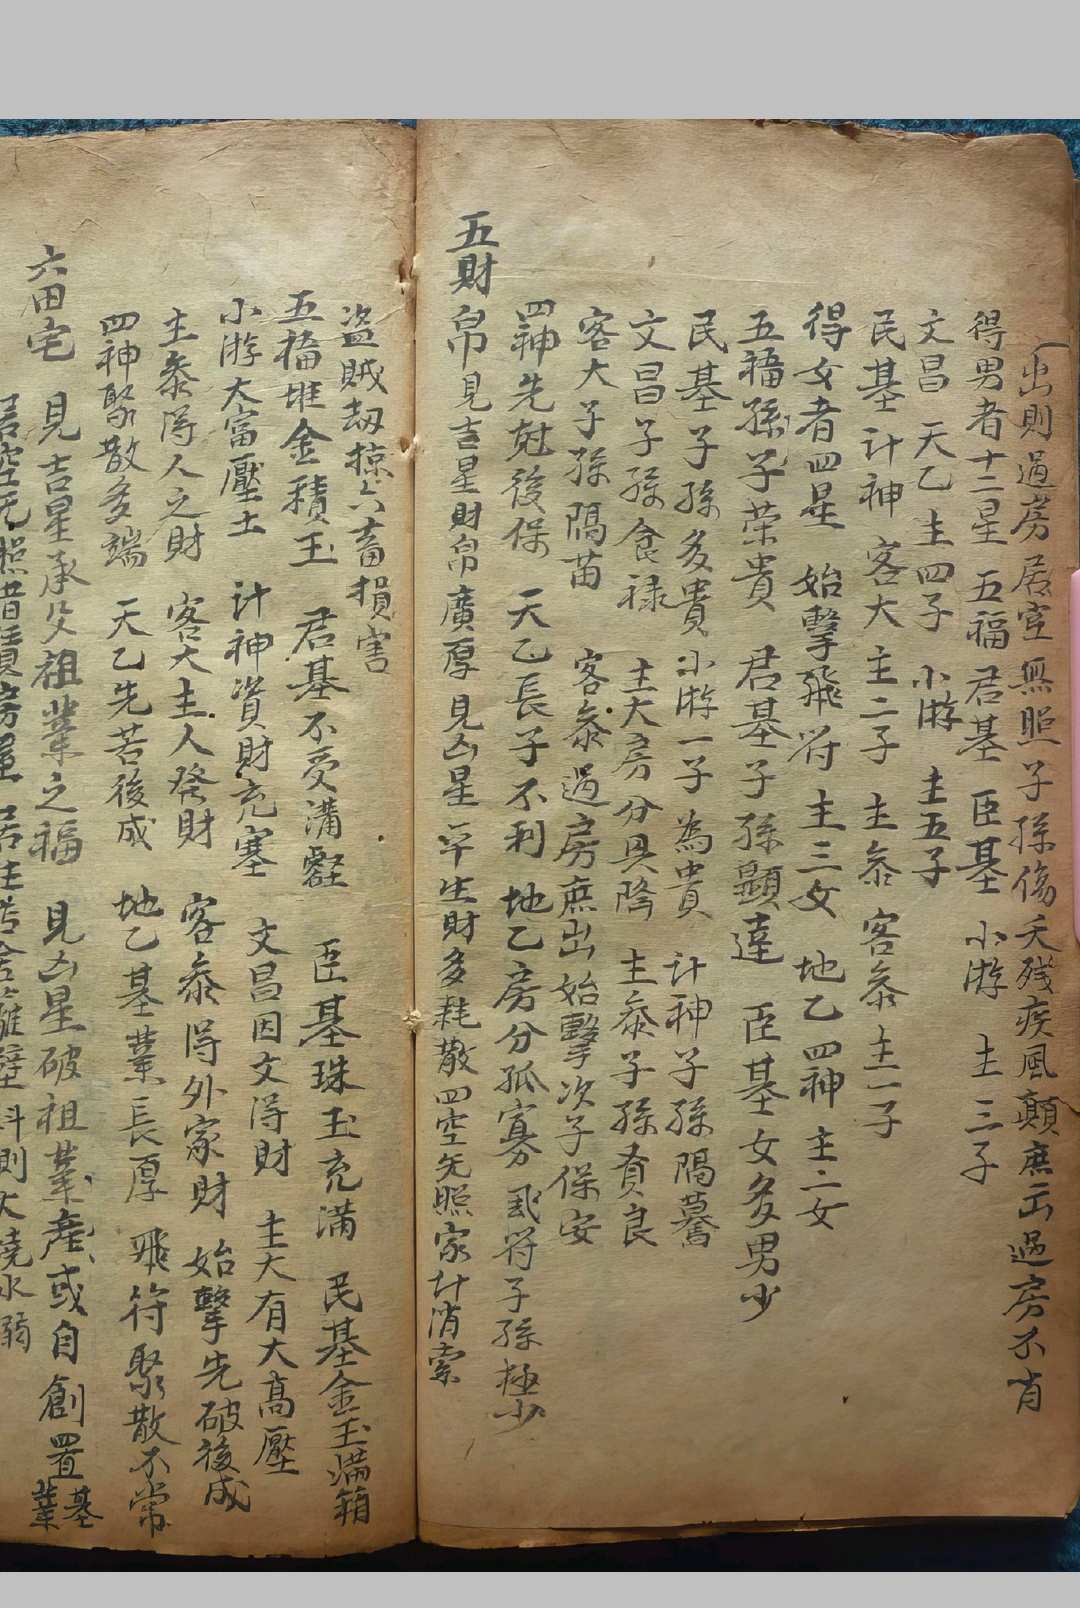 出則過房居空無照子孫傷夭残疾風顛庶出過房不肖
得男者十二星 五福君基 臣基 小游 主三子
文昌 天乙主四子 小游 主五子
民基計神 客大 主二子 主叅 客叅主一子
得女者四星 始擊飛符 主三女 地乙四神 主二女
五福孫子荣貴 君基子孫顯達 臣基女多男少
民基子孫多貴 小游一子為貴 計神子孫隔
文昌子孫食禄 主大房分具降 主叅子孫賁良
客大子孫隔苗 客叅過房庶出始擊次子保安
四神先尅後保 天乙長子不利 地乙房分孤寡 飛符子孫極少
五財帛見吉星財帛廣厚見凶星平生財多耗散四空无照家計消索
盗賊刼掠六畜損害
五福堆金積玉 君基不受溝壑 臣基珠玉充满 民基金玉满箱
小游大富壓土 計神資財充塞 文昌因文得財 主大有大高壓
主叅得人之財 客大主人發財 客叅得外家財 始擊先破後成
四神聚散多端 天乙先苦後成 地乙基業長厚 飛符聚散不常
六田宅 見吉星承父祖業之福 見凶星破祖業産或自創置基業
居空无照借賃房屋 居主